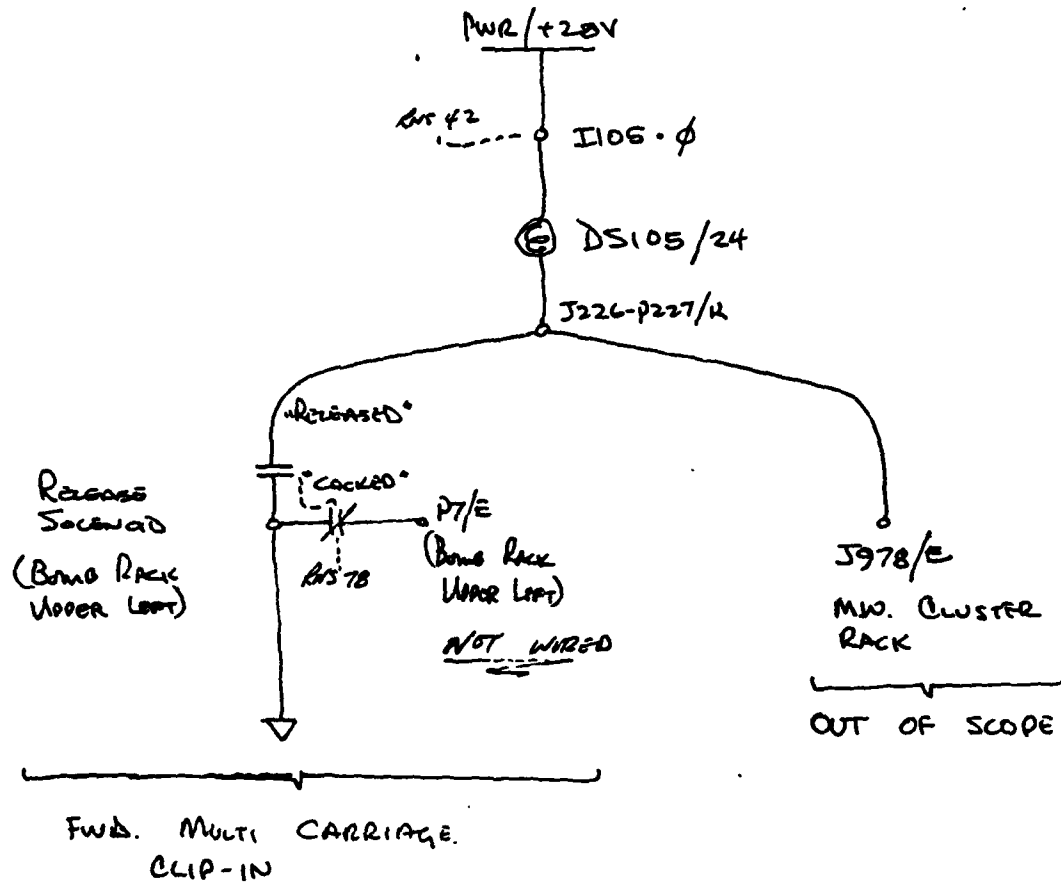 PWR/+28V
I105·φ
DS105/24
J226-P227/K
"RELEASED"
"COCKED"
RELEASE
SOLENOID
(BOMB RACK
UPPER LEFT)
P7/E
(BOMB RACK
UPPER LEFT)
NOT WIRED
J978/E
MW. CLUSTER
RACK
OUT OF SCOPE
FWD. MULTI CARRIAGE.
CLIP-IN